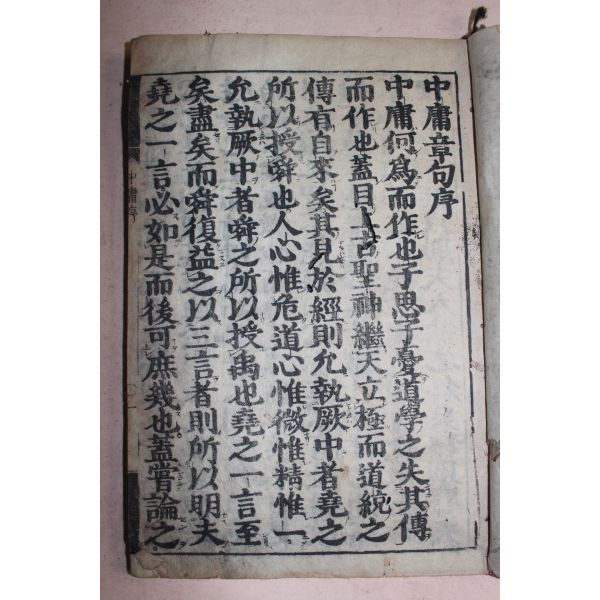 中庸章句序
中庸何爲而作也子思子憂道學之失其傳
而作也蓋自上古聖神繼天立極而道統之
傳有自來矣其見於經則允執厥中者堯之
所以授舜也人心惟危道心惟微惟精惟一
允執厥中者舜之所以授禹也堯之一言至
矣盡矣而舜復益之以三言者則所以明夫
堯之一言必如是而後可庶幾也蓋嘗論之
中庸序